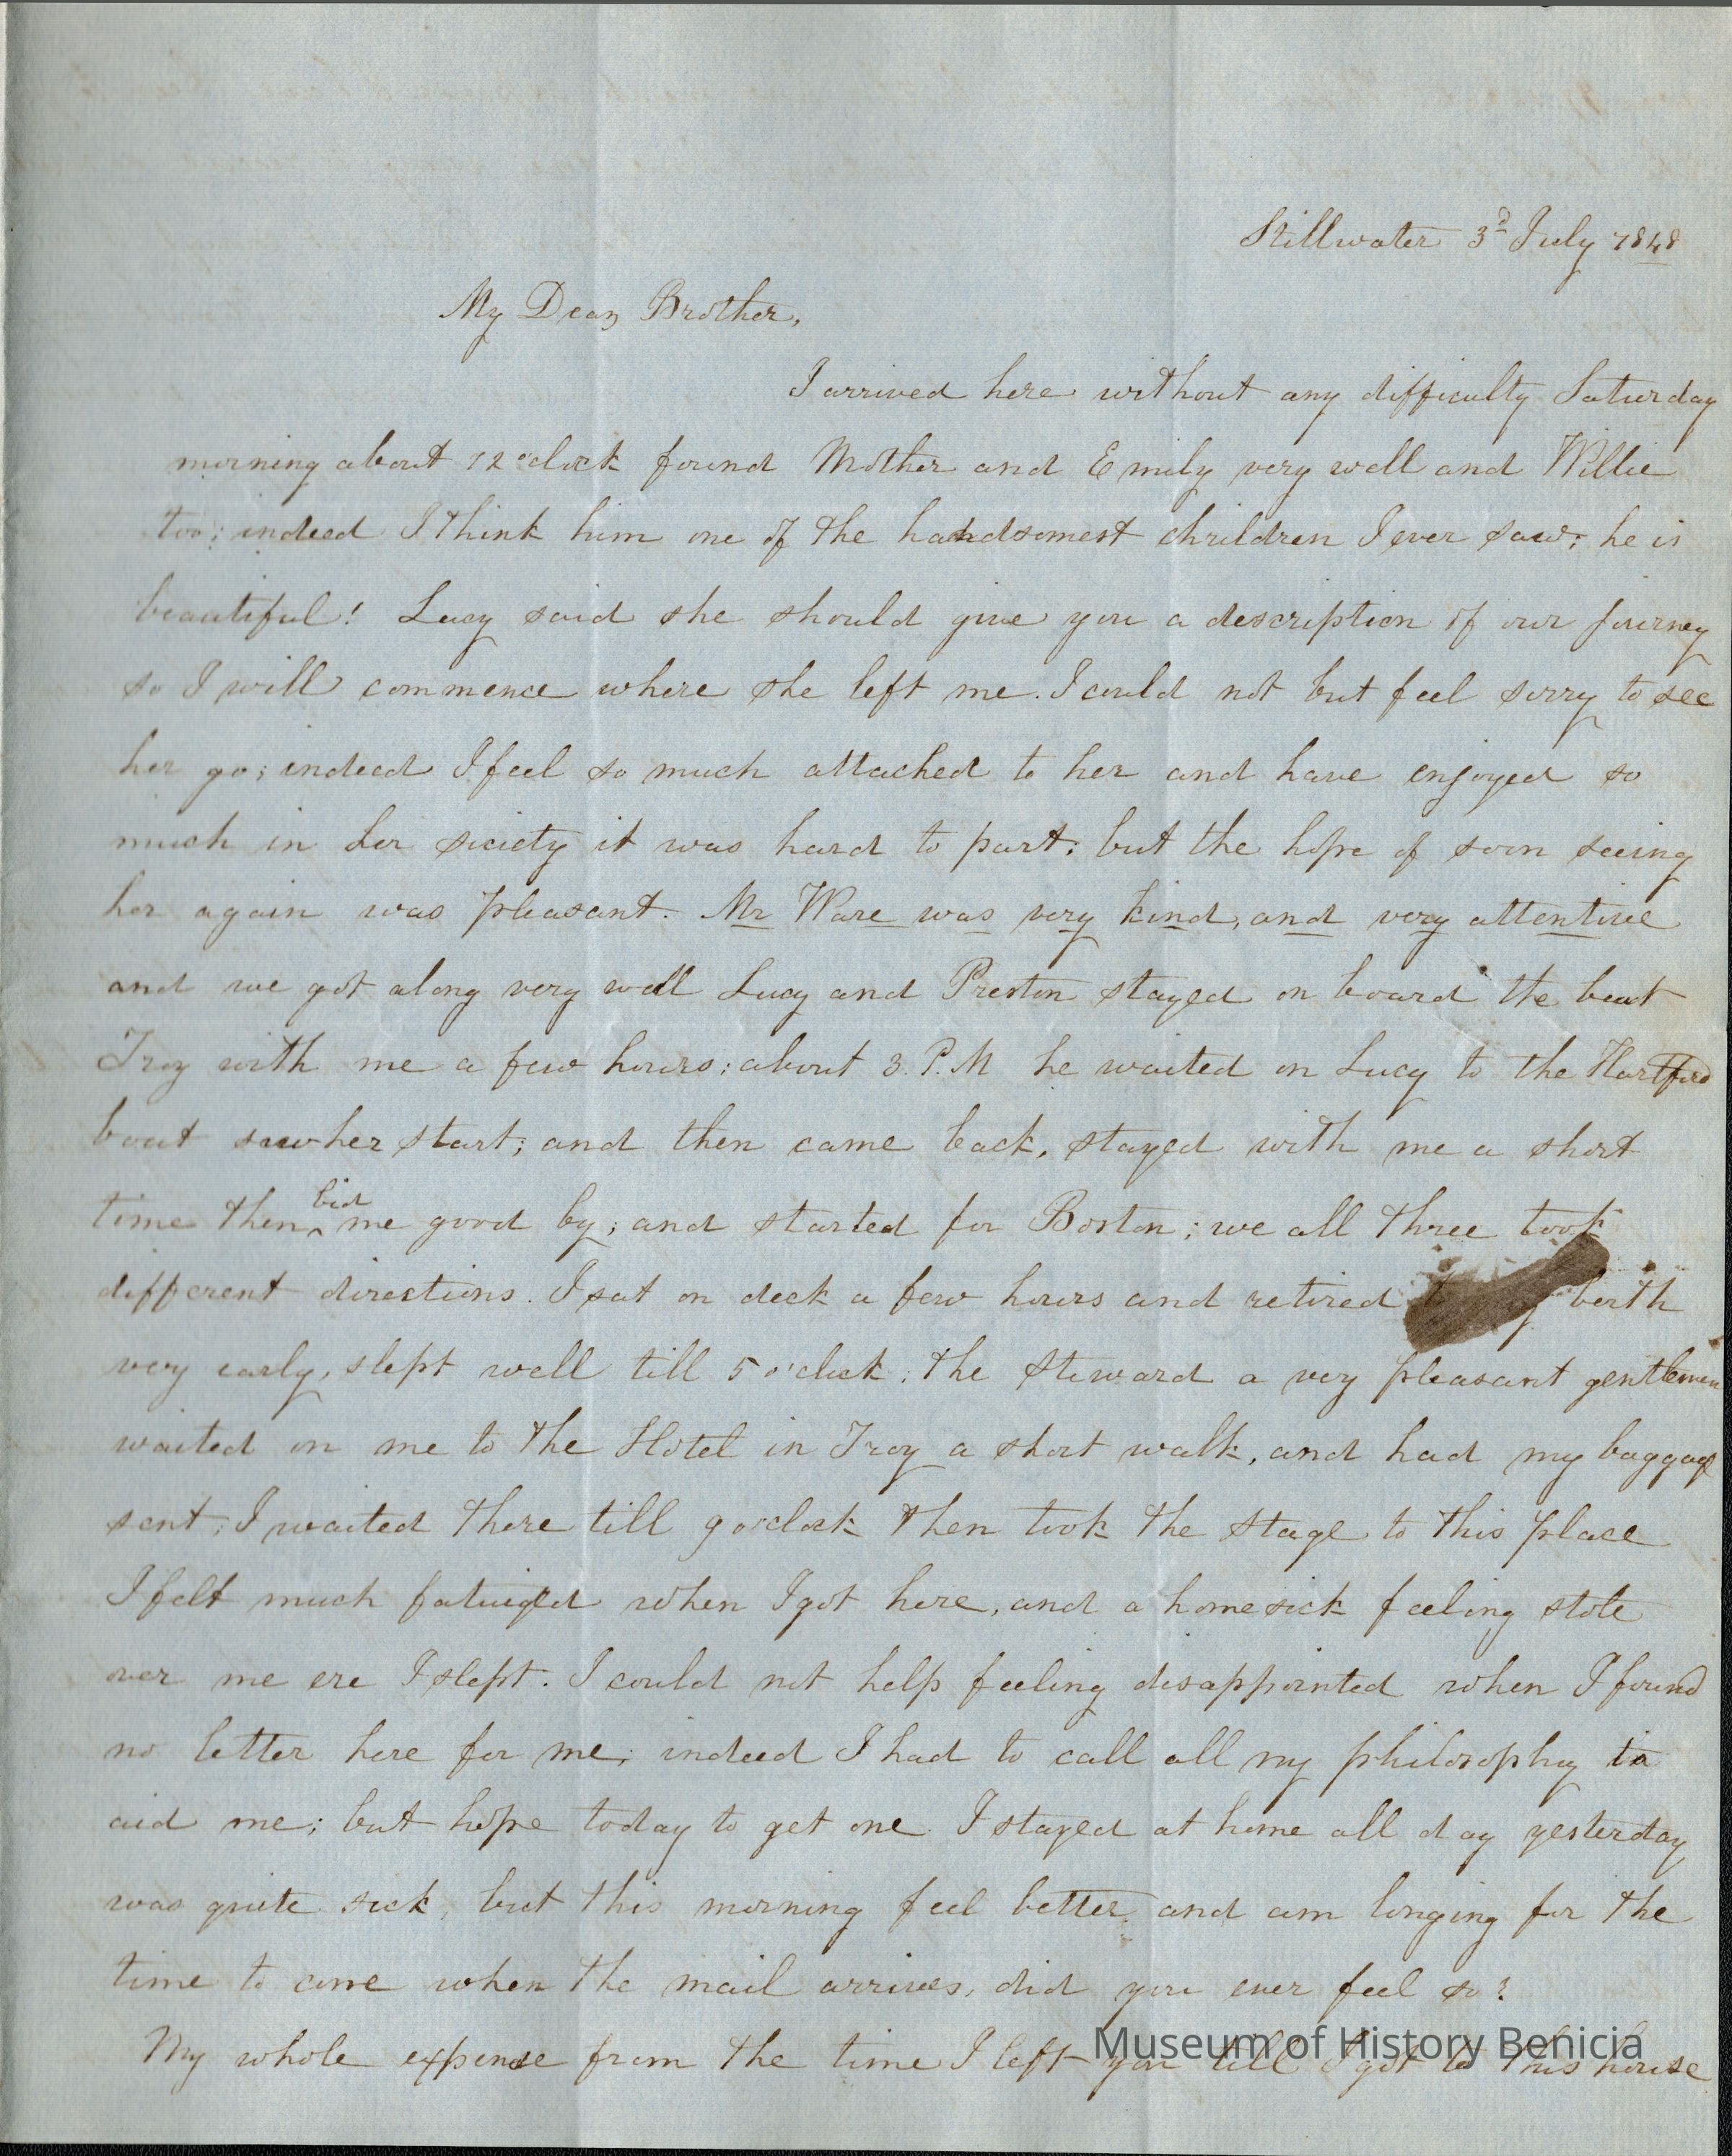 Stillwater 3d July 1848
My Dear Brother,
I arrived here without any difficulty Saturday
morning about 12 o'clock found Mother and Emily very well and Willie
too; indeed I think him one of the handsomest children I ever saw; he is
beautiful! Lucy said she should give you a description of our journey
so I will commence where she left me. I could not but feel sorry to see
her go; indeed I feel so much attached to her and have enjoyed so
much in her society it was hard to part; but the hope of soon seeing
her again was pleasant. Mr Ware was very kind, and very attentive
and we got along very well Lucy and Preston stayed on board the boat
Troy with me a few hours; about 3. P.M he waited on Lucy to the Hartford
boat saw her start; and then came back, stayed with me a short
time then bid me good by; and started for Boston; we all three took
different directions. I sat on deck a few hours and retired to my berth
very early, slept well till 5 o'clock; the steward a very pleasant gentlemen
waited on me to the Hotel in Troy a short walk, and had my baggage
sent; I waited there till 9 o'clock then took the stage to this place
I felt much fatuiged when I got here, and a homesick feeling stole
over me ere I slept. I could not help feeling disappointed when I found
no letter here for me; indeed I had to call all my philosophy to
aid me; but hope today to get one. I stayed at home all day yesterday
was quite sick, but this morning feel better, and am longing for the
time to come when the mail arrives, did you ever feel so?
My whole expense from the time I left you till I got to this house
Museum of History Benicia